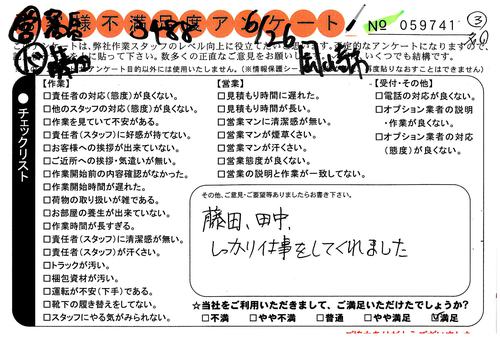 様不満足度アンケート
5488 6/26
№ 059741
③
アンケートは、弊社作業スタッフのレベル向上に役立てたい
【作業】
□責任者の対応(態度)が良くない。
□他のスタッフの対応(態度)が良くない。
□作業を見ていて不安がある。
□責任者(スタッフ)に好感が持てない。
□お客様への挨拶が出来ていない。
□ご近所への挨拶・気遣いが無い。
□作業開始前の内容確認がなかった。
□作業開始時間が遅れた。
□荷物の取り扱いが雑である。
□お部屋の養生が出来ていない。
□作業時間が長すぎる。
□責任者(スタッフ)に清潔感が無い。
□責任者(スタッフ)が汗くさい。
□トラックが汚い。
□梱包資材が汚い。
□運転が不安(下手)である。
□靴下の履き替えをしてない。
□スタッフにやる気がみられない。
【営業】
□見積もり時間に遅れた。
□見積もり時間が長い。
□営業マンに清潔感が無い。
□営業マンが煙草くさい。
□営業マンが汗くさい。
□営業態度が良くない。
□営業の説明と作業が一致してない。
【受付・その他】
□電話の対応が良くない。
□オプション業者の説明
・作業が良くない。
□オプション業者の対応
(態度)が良くない。
●チェックリスト
その他、ご意見・ご要望等ありましたらお書き下さい。
藤田、田中、
しっかり仕事をしてくれました
☆当社をご利用いただきまして、ご満足いただけたでしょうか?
□不満 □やや不満 □普通 □やや満足 ☑満足